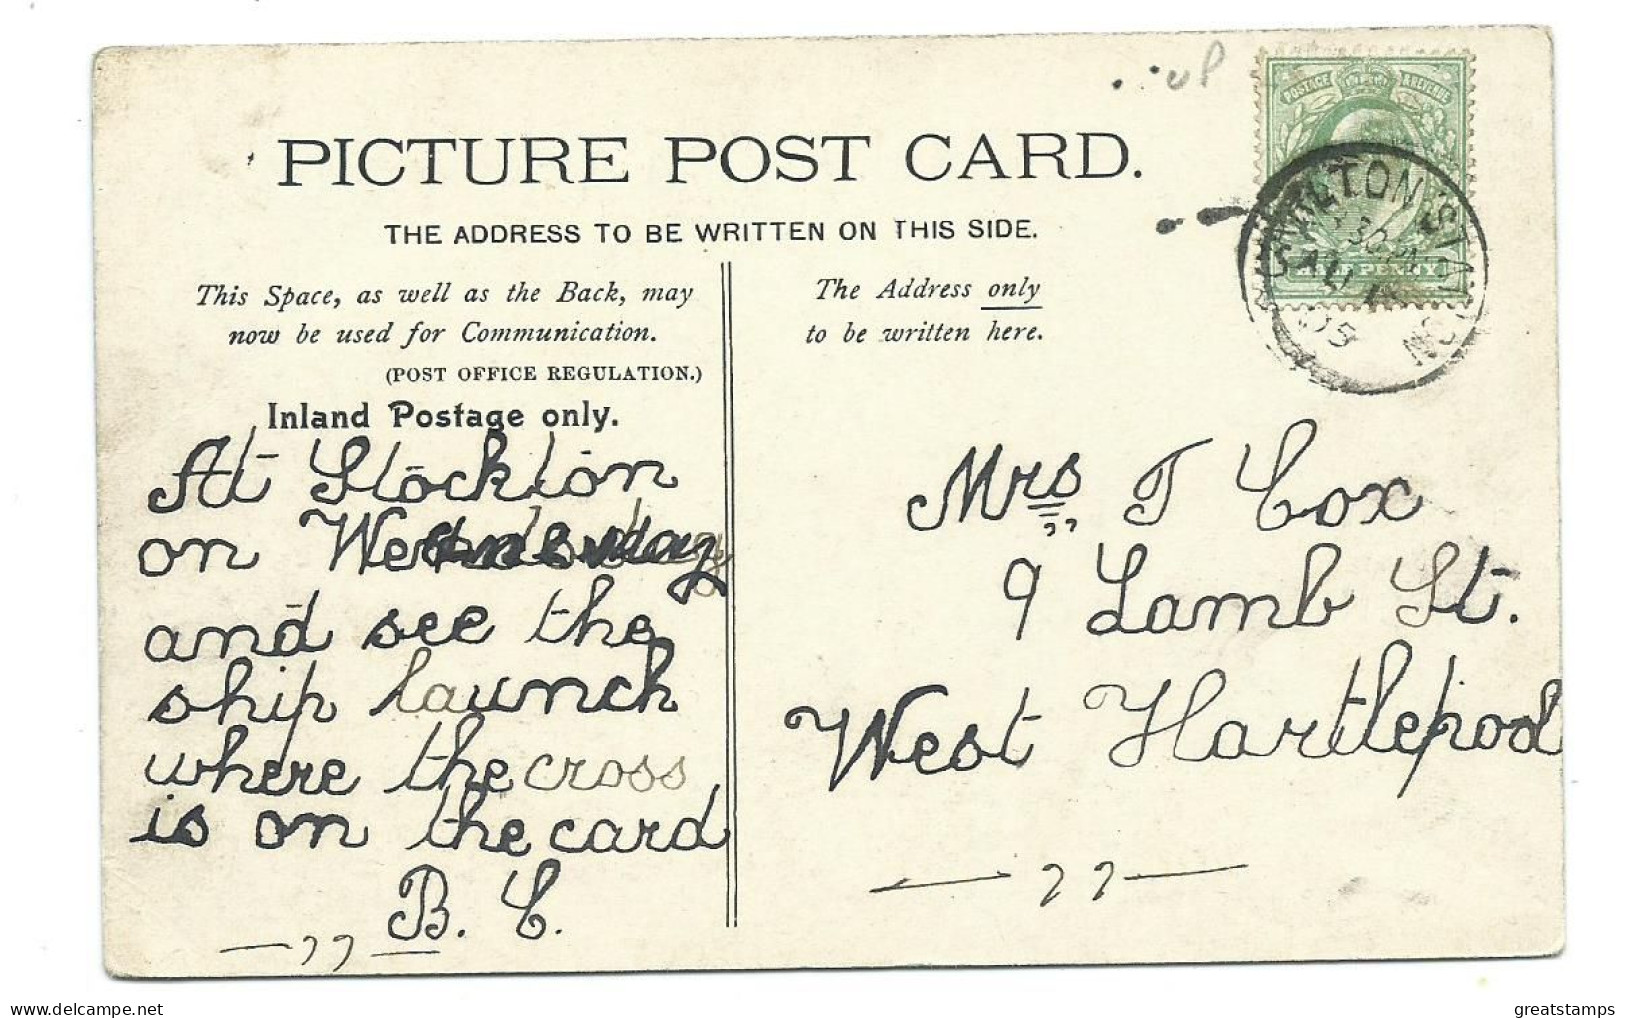 uP
PICTURE POST CARD.
THE ADDRESS TO BE WRITTEN ON THIS SIDE.
POSTAGE & REVENUE
HALF PENNY
CARLTON STATION
AU
05
This Space, as well as the Back, may
now be used for Communication.
(POST OFFICE REGULATION.)
Inland Postage only.
The Address only
to be written here.
At Stockton
on Wednesday
and see the
ship launch
where the cross
is on the card
B. C.
Mrs T Cox
9 Lamb St.
West Hartlepool
greatstamps